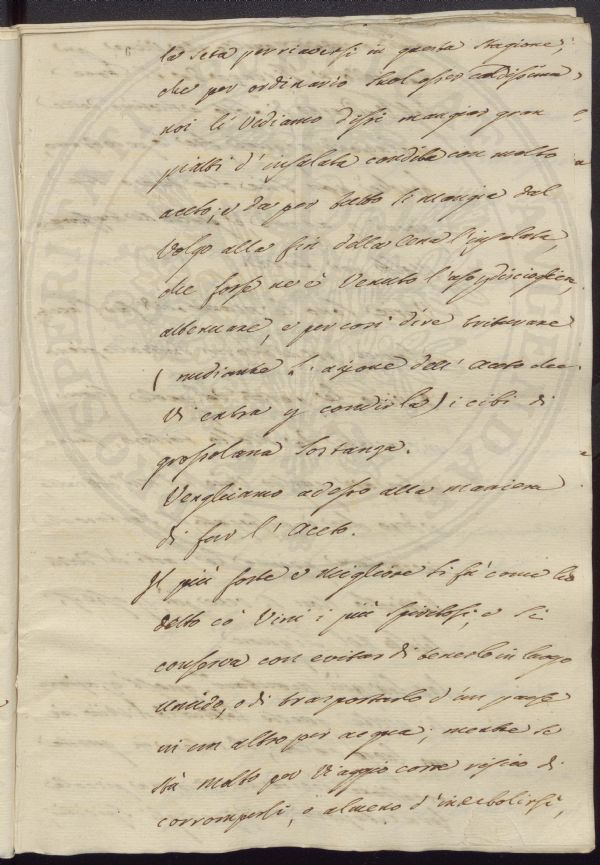 la seta per riaversi in questa stagione,
che per ordinario suol esser caldissima,
noi li vediamo dissi mangiar gran
piatti d'insalata condita con molto
aceto; e da per tutto si mangia dal
volgo alla fin della Cena l'insalata,
che forse ne è venuto l'uso p disciogliere,
attenuare, e per così dire triturare
( mediante l'azione dell'Aceto che
vi entra p condirla ) i cibi di
grossolana sostanza.
Venghiamo adesso alla maniera
di far l'Aceto.
Il più forte e migliore si fà come hò
detto cò Vini i più spiritosi, e si
conserva con evitar di tenerlo in luogo
umido, o di trasportarlo d'un paese
in un altro per acqua; mentre se
stà molto per viaggio corre risico di
corrompersi, o almeno d'indebolirsi,